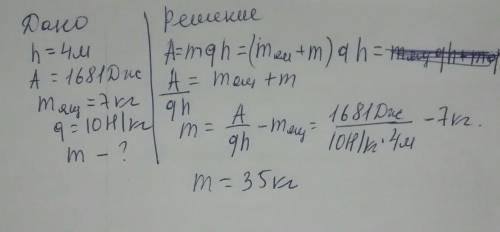 Дано
h = 4м
A = 1681Дж
mящ = 7кг
g = 10Н/кг
m – ?
Решение
A = mgh = (mящ + m) gh = mящ gh + mg
A/gh = mящ + m
m = A/gh – mящ = 1681Дж/10Н/кг·4м – 7кг.
m = 35кг